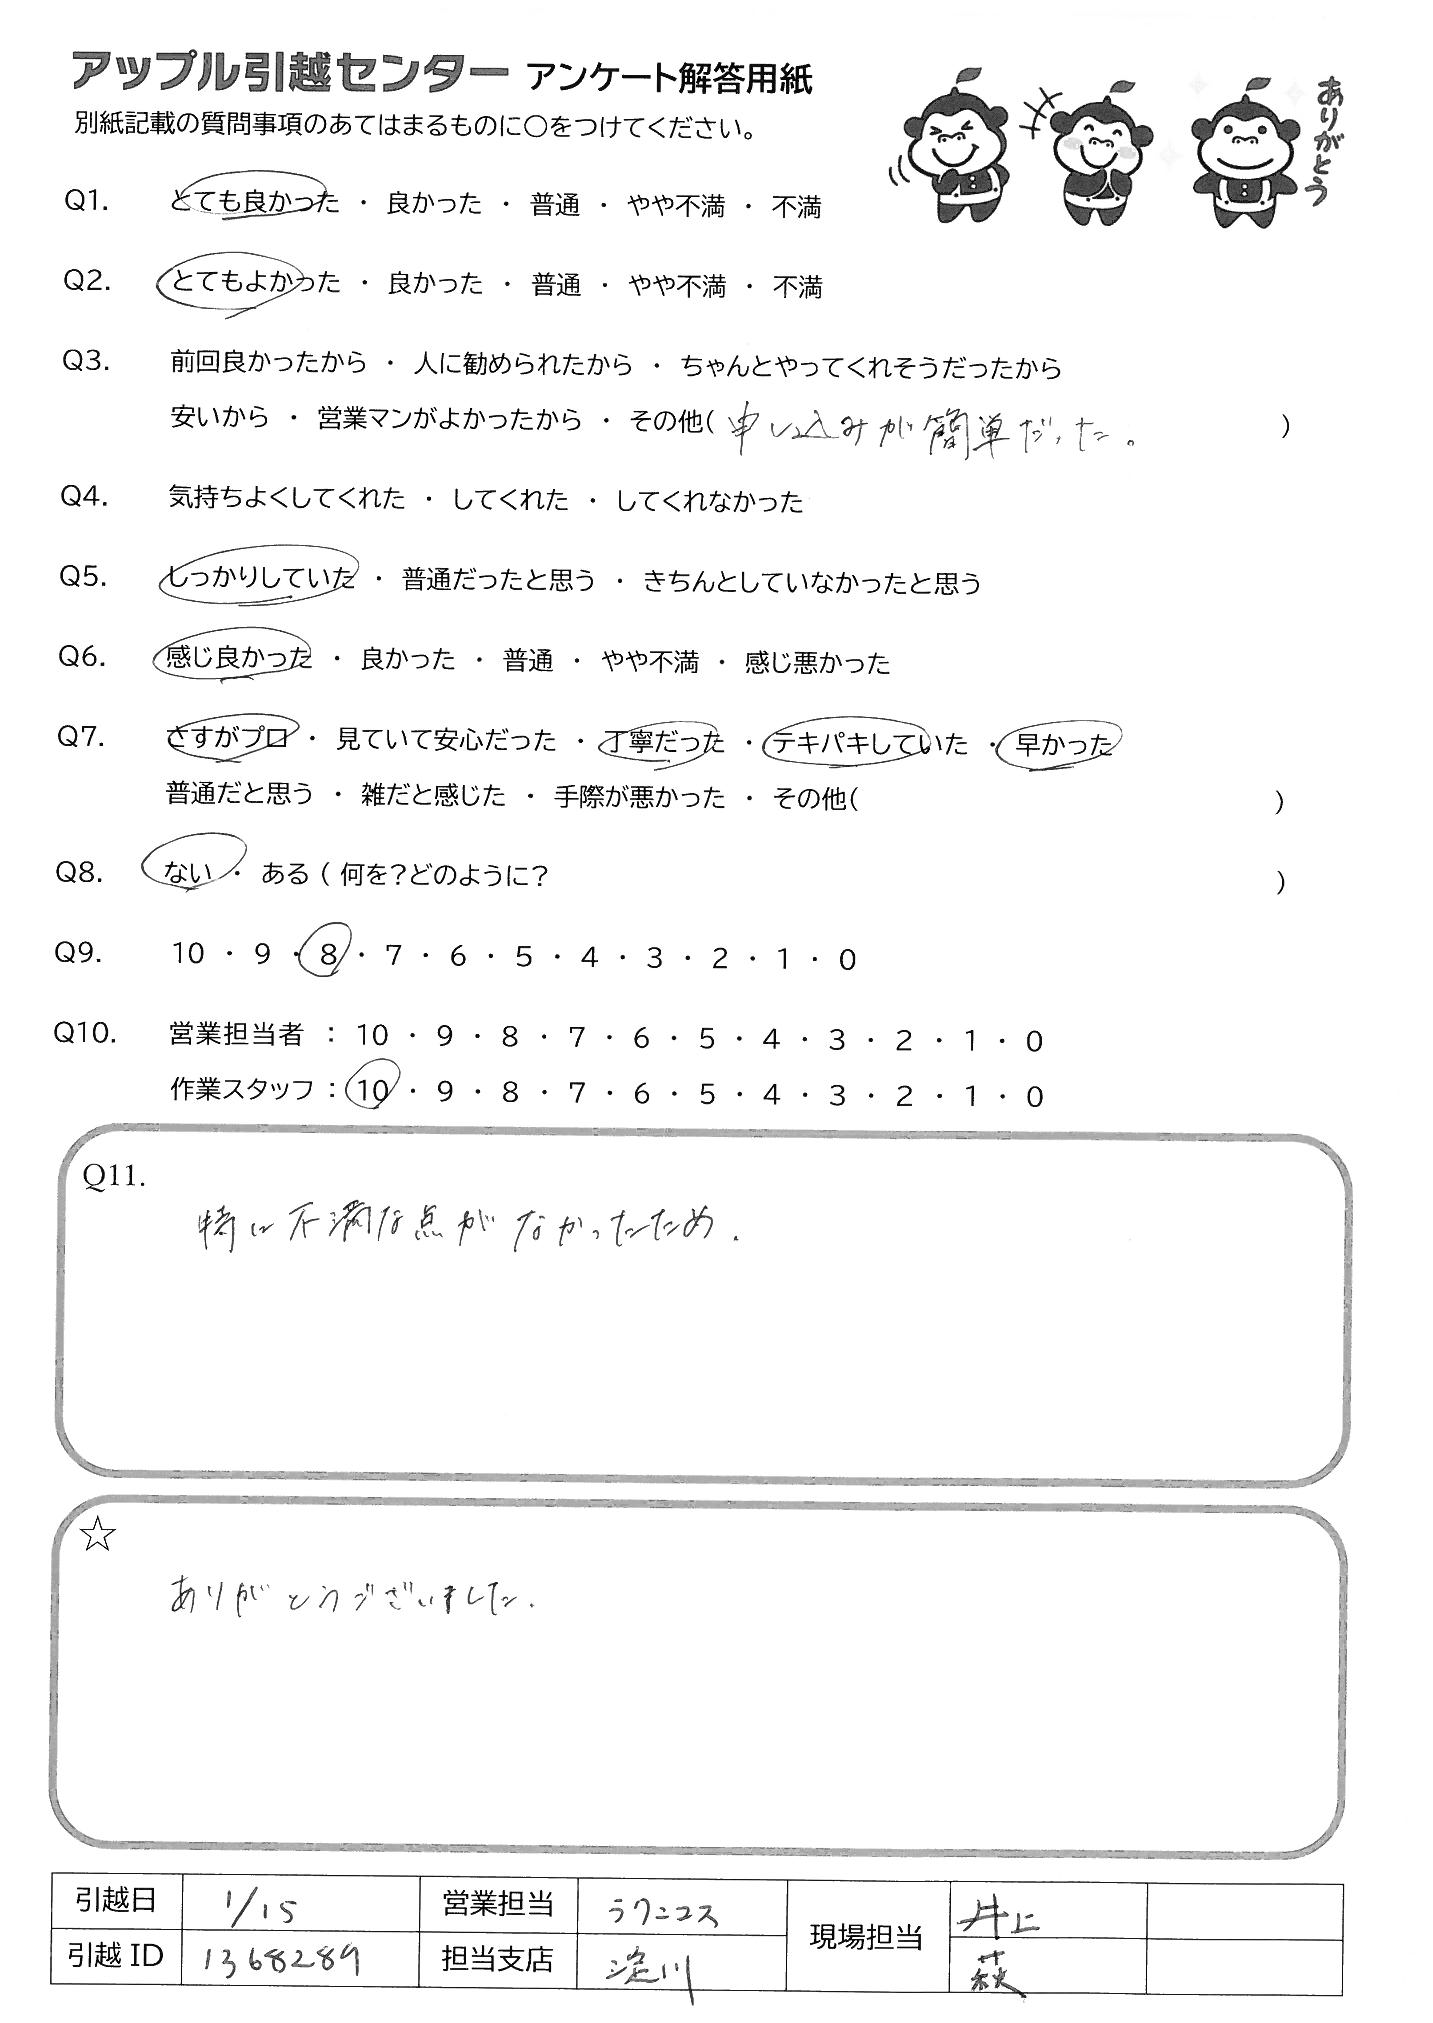 アップル引越センター アンケート解答用紙
別紙記載の質問事項のあてはまるものに〇をつけてください。
ありがとう
Q1. とても良かった ・ 良かった ・ 普通 ・ やや不満 ・ 不満
Q2. とてもよかった ・ 良かった ・ 普通 ・ やや不満 ・ 不満
Q3. 前回良かったから ・ 人に勧められたから ・ ちゃんとやってくれそうだったから
安いから ・ 営業マンがよかったから ・ その他( 申し込みが簡単だった。 )
Q4. 気持ちよくしてくれた ・ してくれた ・ してくれなかった
Q5. しっかりしていた ・ 普通だったと思う ・ きちんとしていなかったと思う
Q6. 感じ良かった ・ 良かった ・ 普通 ・ やや不満 ・ 感じ悪かった
Q7. さすがプロ ・ 見ていて安心だった ・ 丁寧だった ・ テキパキしていた ・ 早かった
普通だと思う ・ 雑だと感じた ・ 手際が悪かった ・ その他( )
Q8. ない ・ ある ( 何を?どのように? )
Q9. 10 ・ 9 ・ 8 ・ 7 ・ 6 ・ 5 ・ 4 ・ 3 ・ 2 ・ 1 ・ 0
Q10. 営業担当者 : 10 ・ 9 ・ 8 ・ 7 ・ 6 ・ 5 ・ 4 ・ 3 ・ 2 ・ 1 ・ 0
作業スタッフ : 10 ・ 9 ・ 8 ・ 7 ・ 6 ・ 5 ・ 4 ・ 3 ・ 2 ・ 1 ・ 0
Q11.
特に不満な点がなかったため.
☆
ありがとうございました.
引越日 1/15 営業担当 ラクニコス 現場担当 井上
引越 ID 1368289 担当支店 淀川 萩